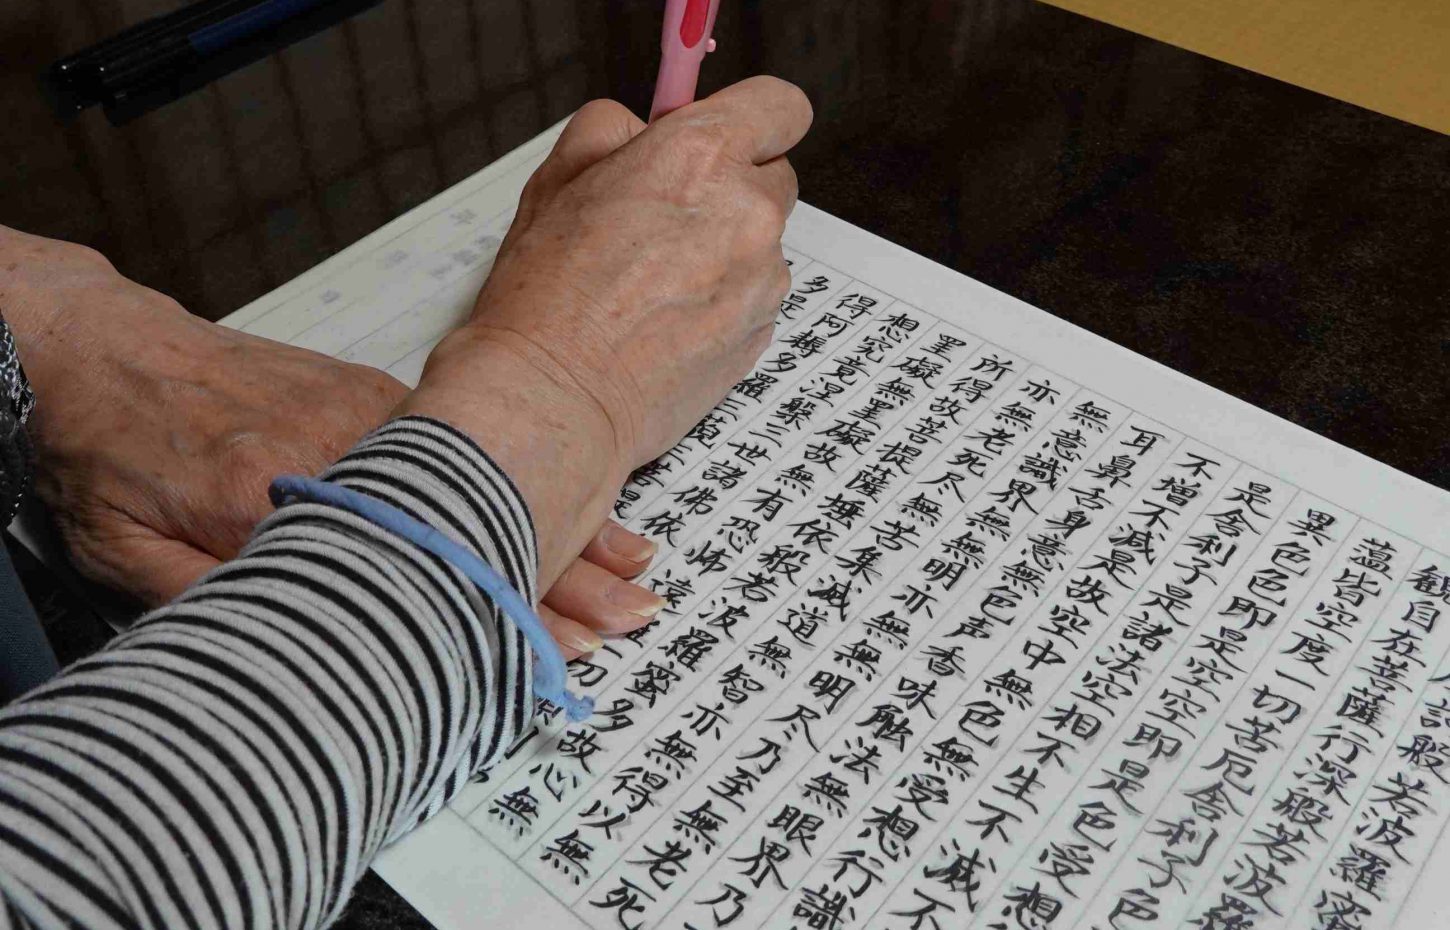 般若波羅蜜
観自在菩薩行深般若波羅
蘊皆空度一切苦厄舎利子色
異色色即是空空即是色受想
是舎利子是諸法空相不生不滅不
不増不減是故空中無色無受想行識
耳鼻舌身意無色声香味触法無眼界乃
無意識界無無明亦無無明尽乃至無老死
亦無老死尽無苦集滅道無智亦無得以無
所得故菩提薩埵依般若波羅蜜多故心無
罣礙無罣礙故無有恐怖遠離一切
想究竟涅槃三世諸佛依
得阿耨多羅三藐三菩提
多是